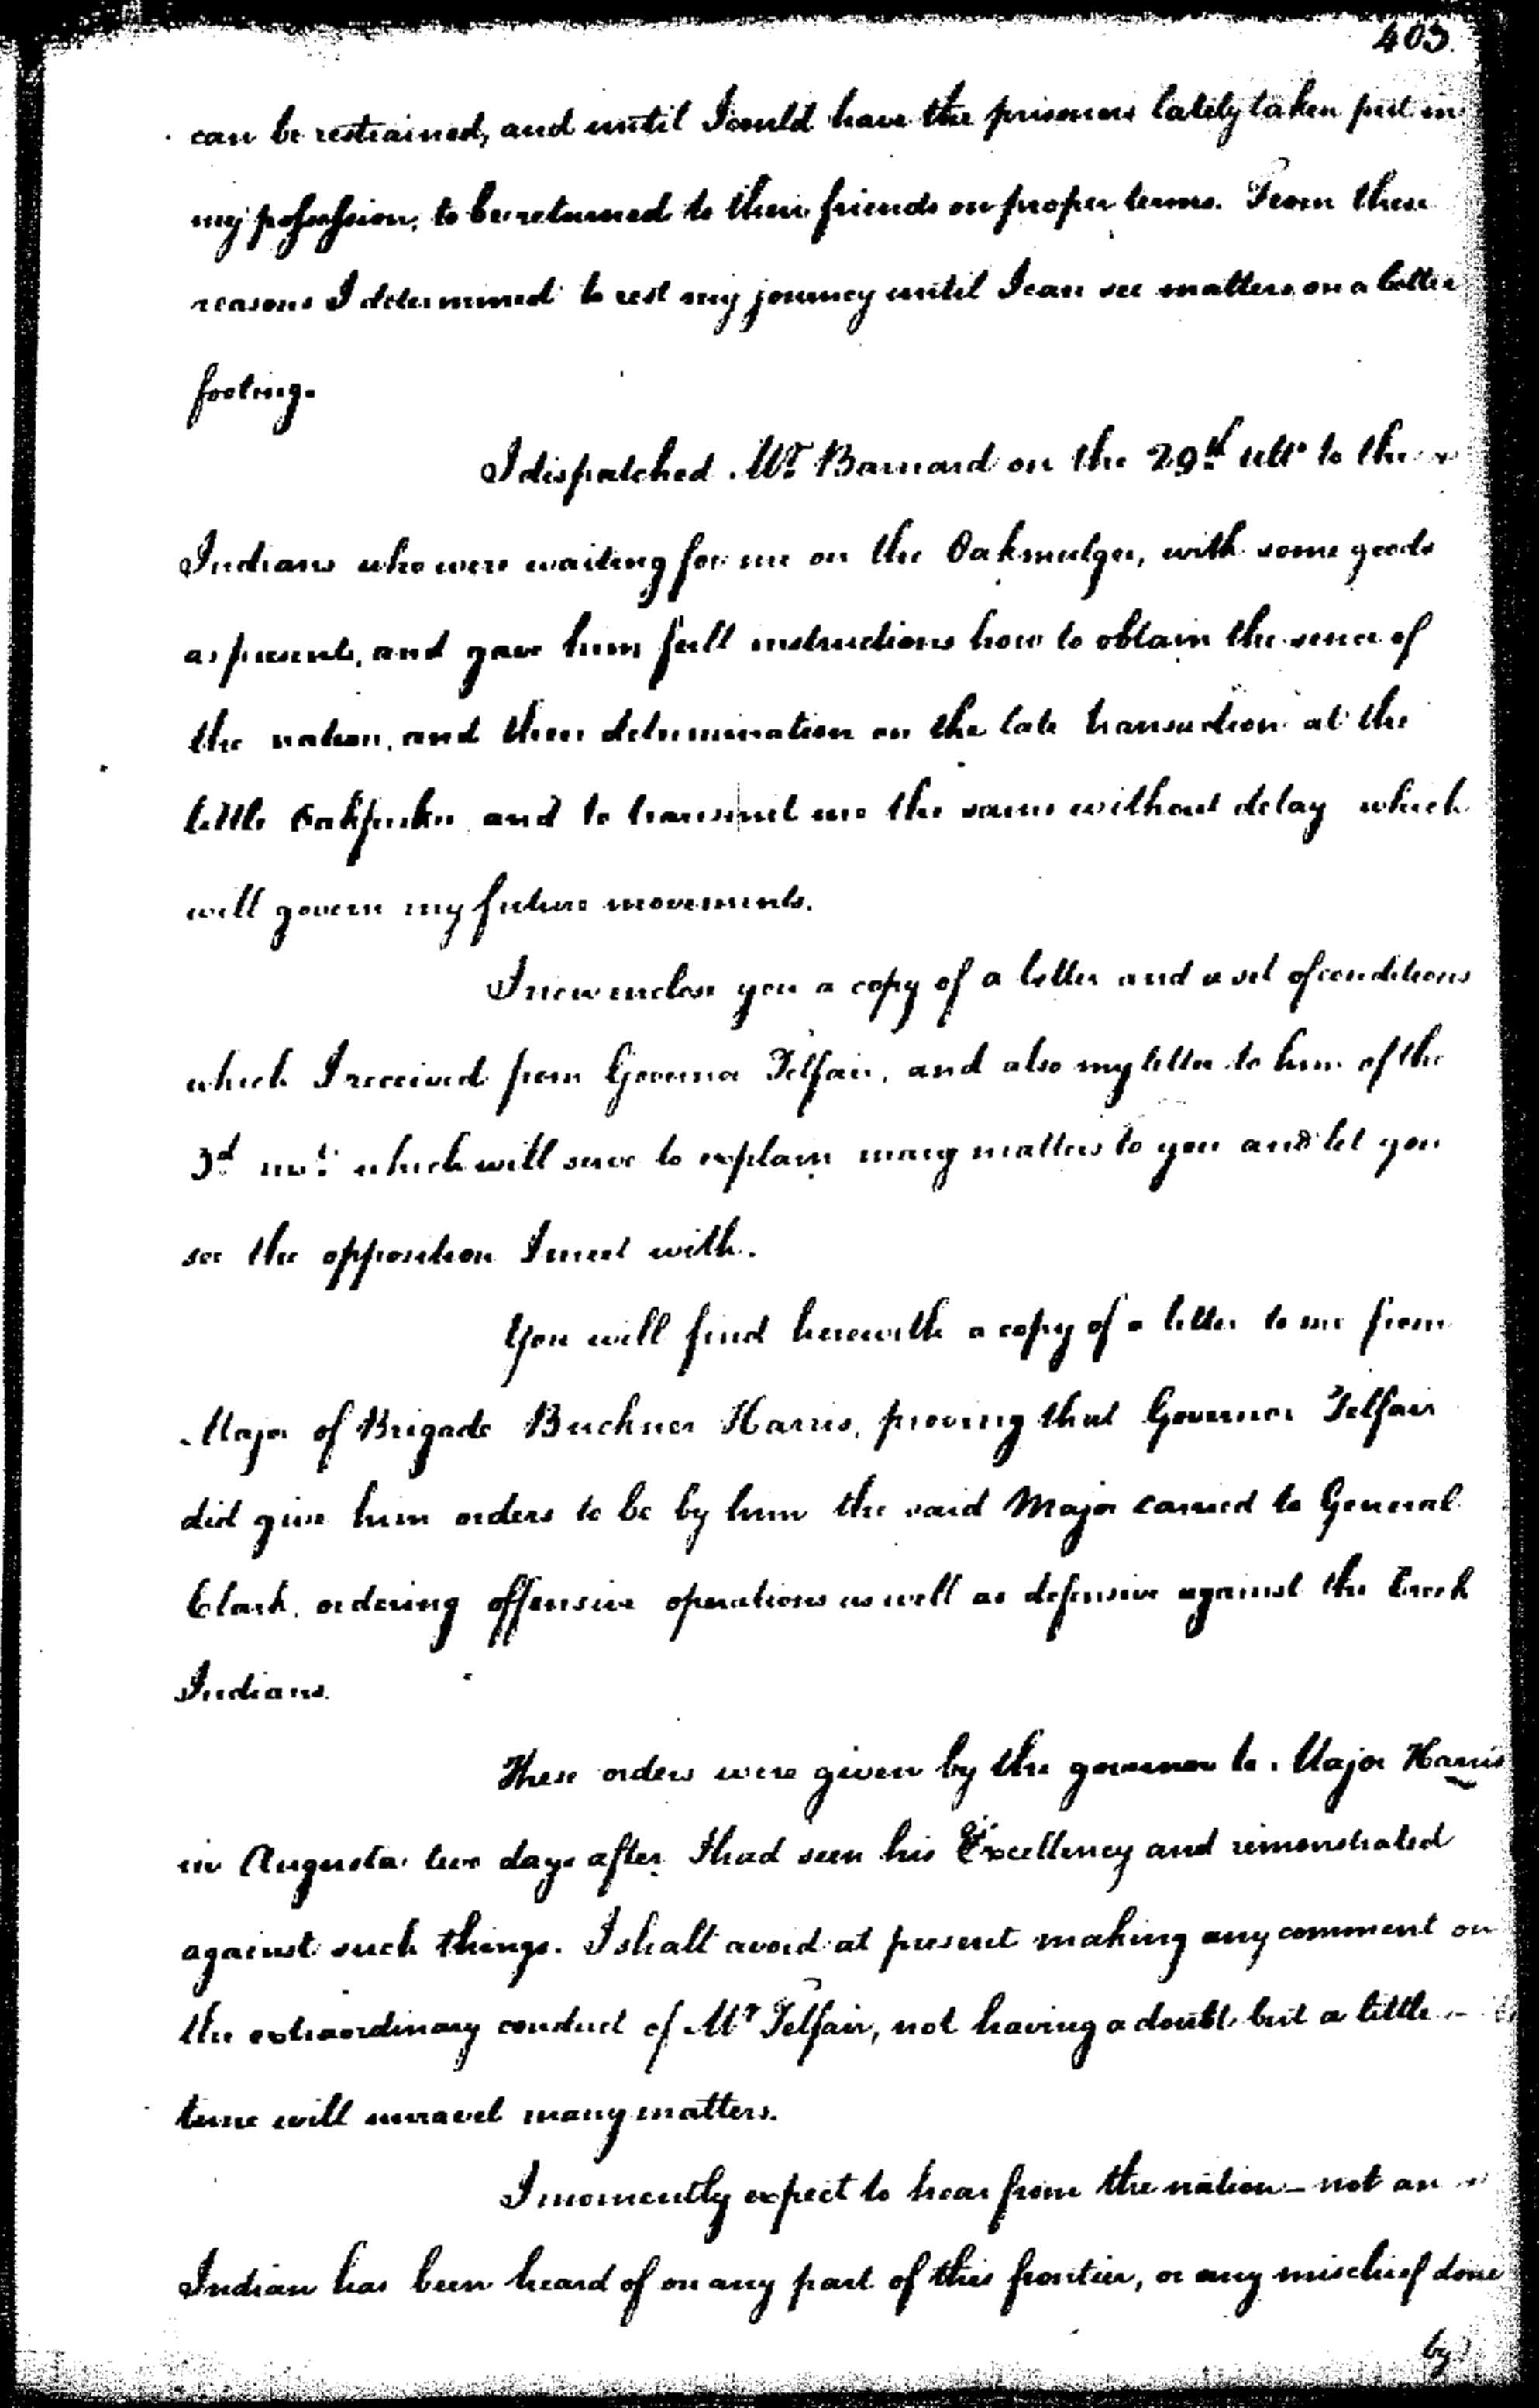 403.
can be restrained, and until I could have the prisoners lately taken put in
my possession, to be returned to their friends on proper terms. From these
reasons I determined to rest my journey until I can see matters on a better
footing.
I dispatched Mr. Barnard on the 29th ulto to the
Indians who were waiting for me on the Oakmulgee, with some goods
as presents, and gave him full instructions how to obtain the sence of
the nation, and their determination on the late transaction at the
little Oakfuskee and to transmit me the same without delay which
will govern my future movements.
I now enclose you a copy of a letter and a set of conditions
which I received from Governor Telfair, and also my letter to him of the
3d inst. which will serve to explain many matters to you and let you
see the opposition I meet with.
You will find herewith a copy of a letter to me from
Major of Brigade Buckner Harris, proving that Governor Telfair
did give him orders to be by him the said Major carried to General
Clark, ordering offensive operations as well as defensive against the Creek
Indians.
These orders were given by the governor to Major Harris
in Augusta two days after I had seen his Excellency and remonstrated
against such things. I shall avoid at present making any comment on
the extraordinary conduct of Mr Telfair, not having a doubt but a little
time will unravel many matters.
I momently expect to hear from the nation – not an
Indian has been heard of on any part of this frontier, or any mischief done
by